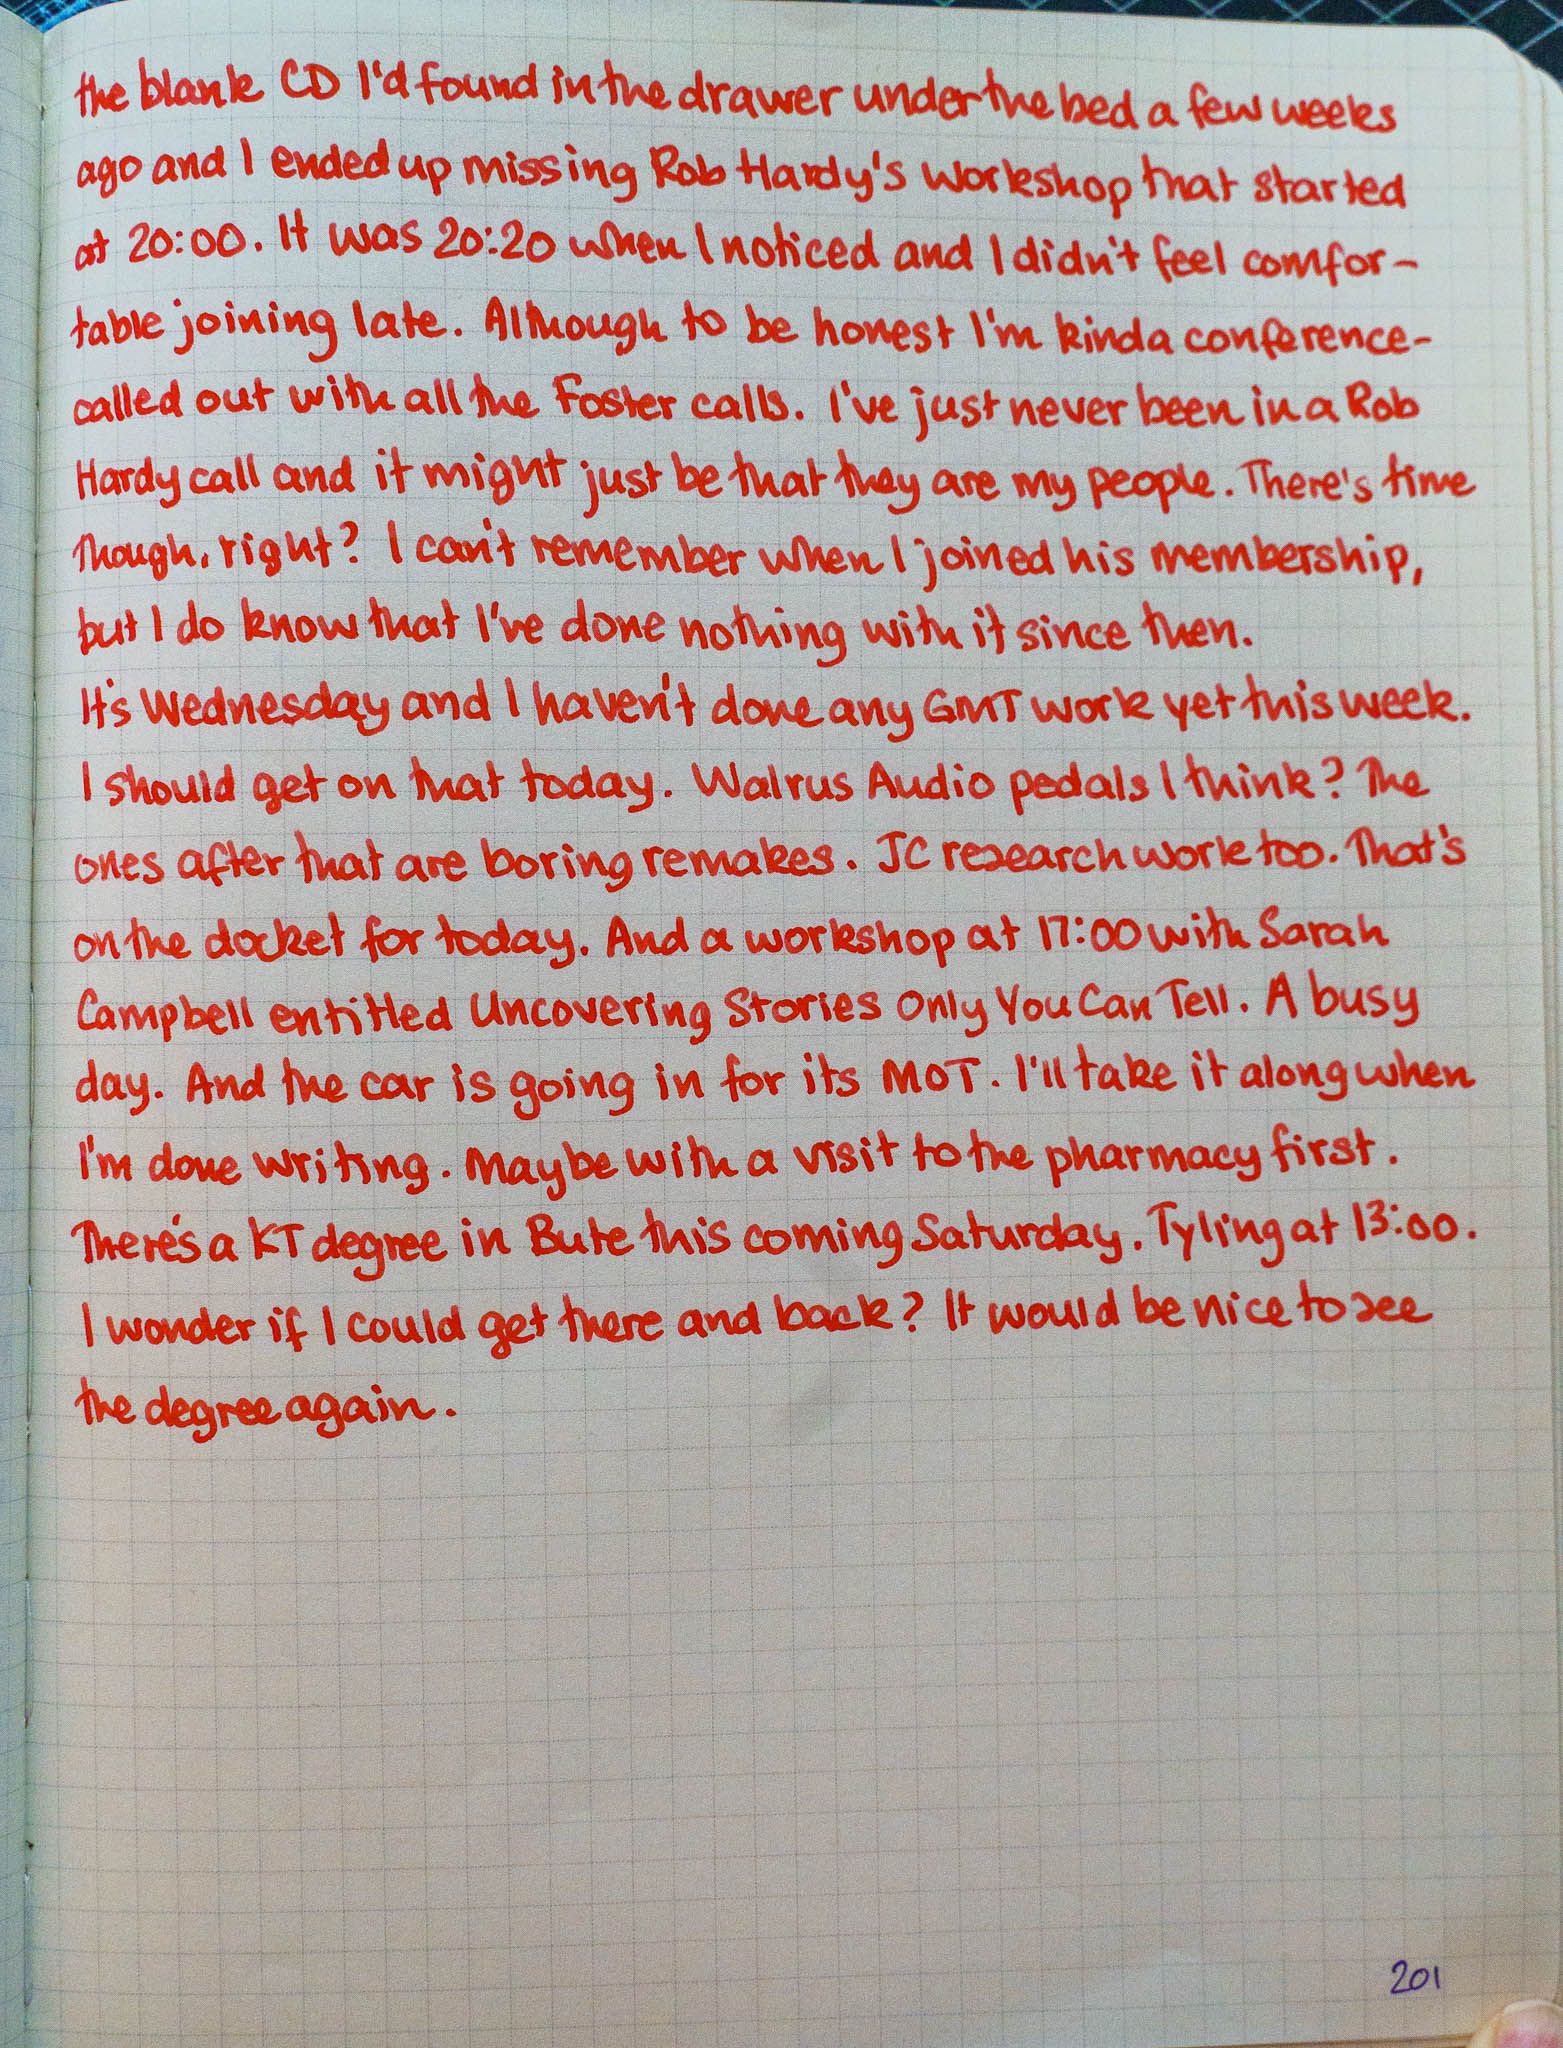 the blank CD I'd found in the drawer under the bed a few weeks
ago and I ended up missing Rob Hardy's workshop that started
at 20:00. It was 20:20 when I noticed and I didn't feel comfor-
table joining late. Although to be honest I'm kinda conference-
called out with all the Foster calls. I've just never been in a Rob
Hardy call and it might just be that they are my people. There's time
though, right? I can't remember when I joined his membership,
but I do know that I've done nothing with it since then.
It's Wednesday and I haven't done any GMT work yet this week.
I should get on that today. Walrus Audio pedals I think? The
ones after that are boring remakes. JC research work too. That's
on the docket for today. And a workshop at 17:00 with Sarah
Campbell entitled Uncovering Stories Only You Can Tell. A busy
day. And the car is going in for its MOT. I'll take it along when
I'm done writing. Maybe with a visit to the pharmacy first.
There's a KT degree in Bute this coming Saturday. Tyling at 13:00.
I wonder if I could get there and back? It would be nice to see
the degree again.
201